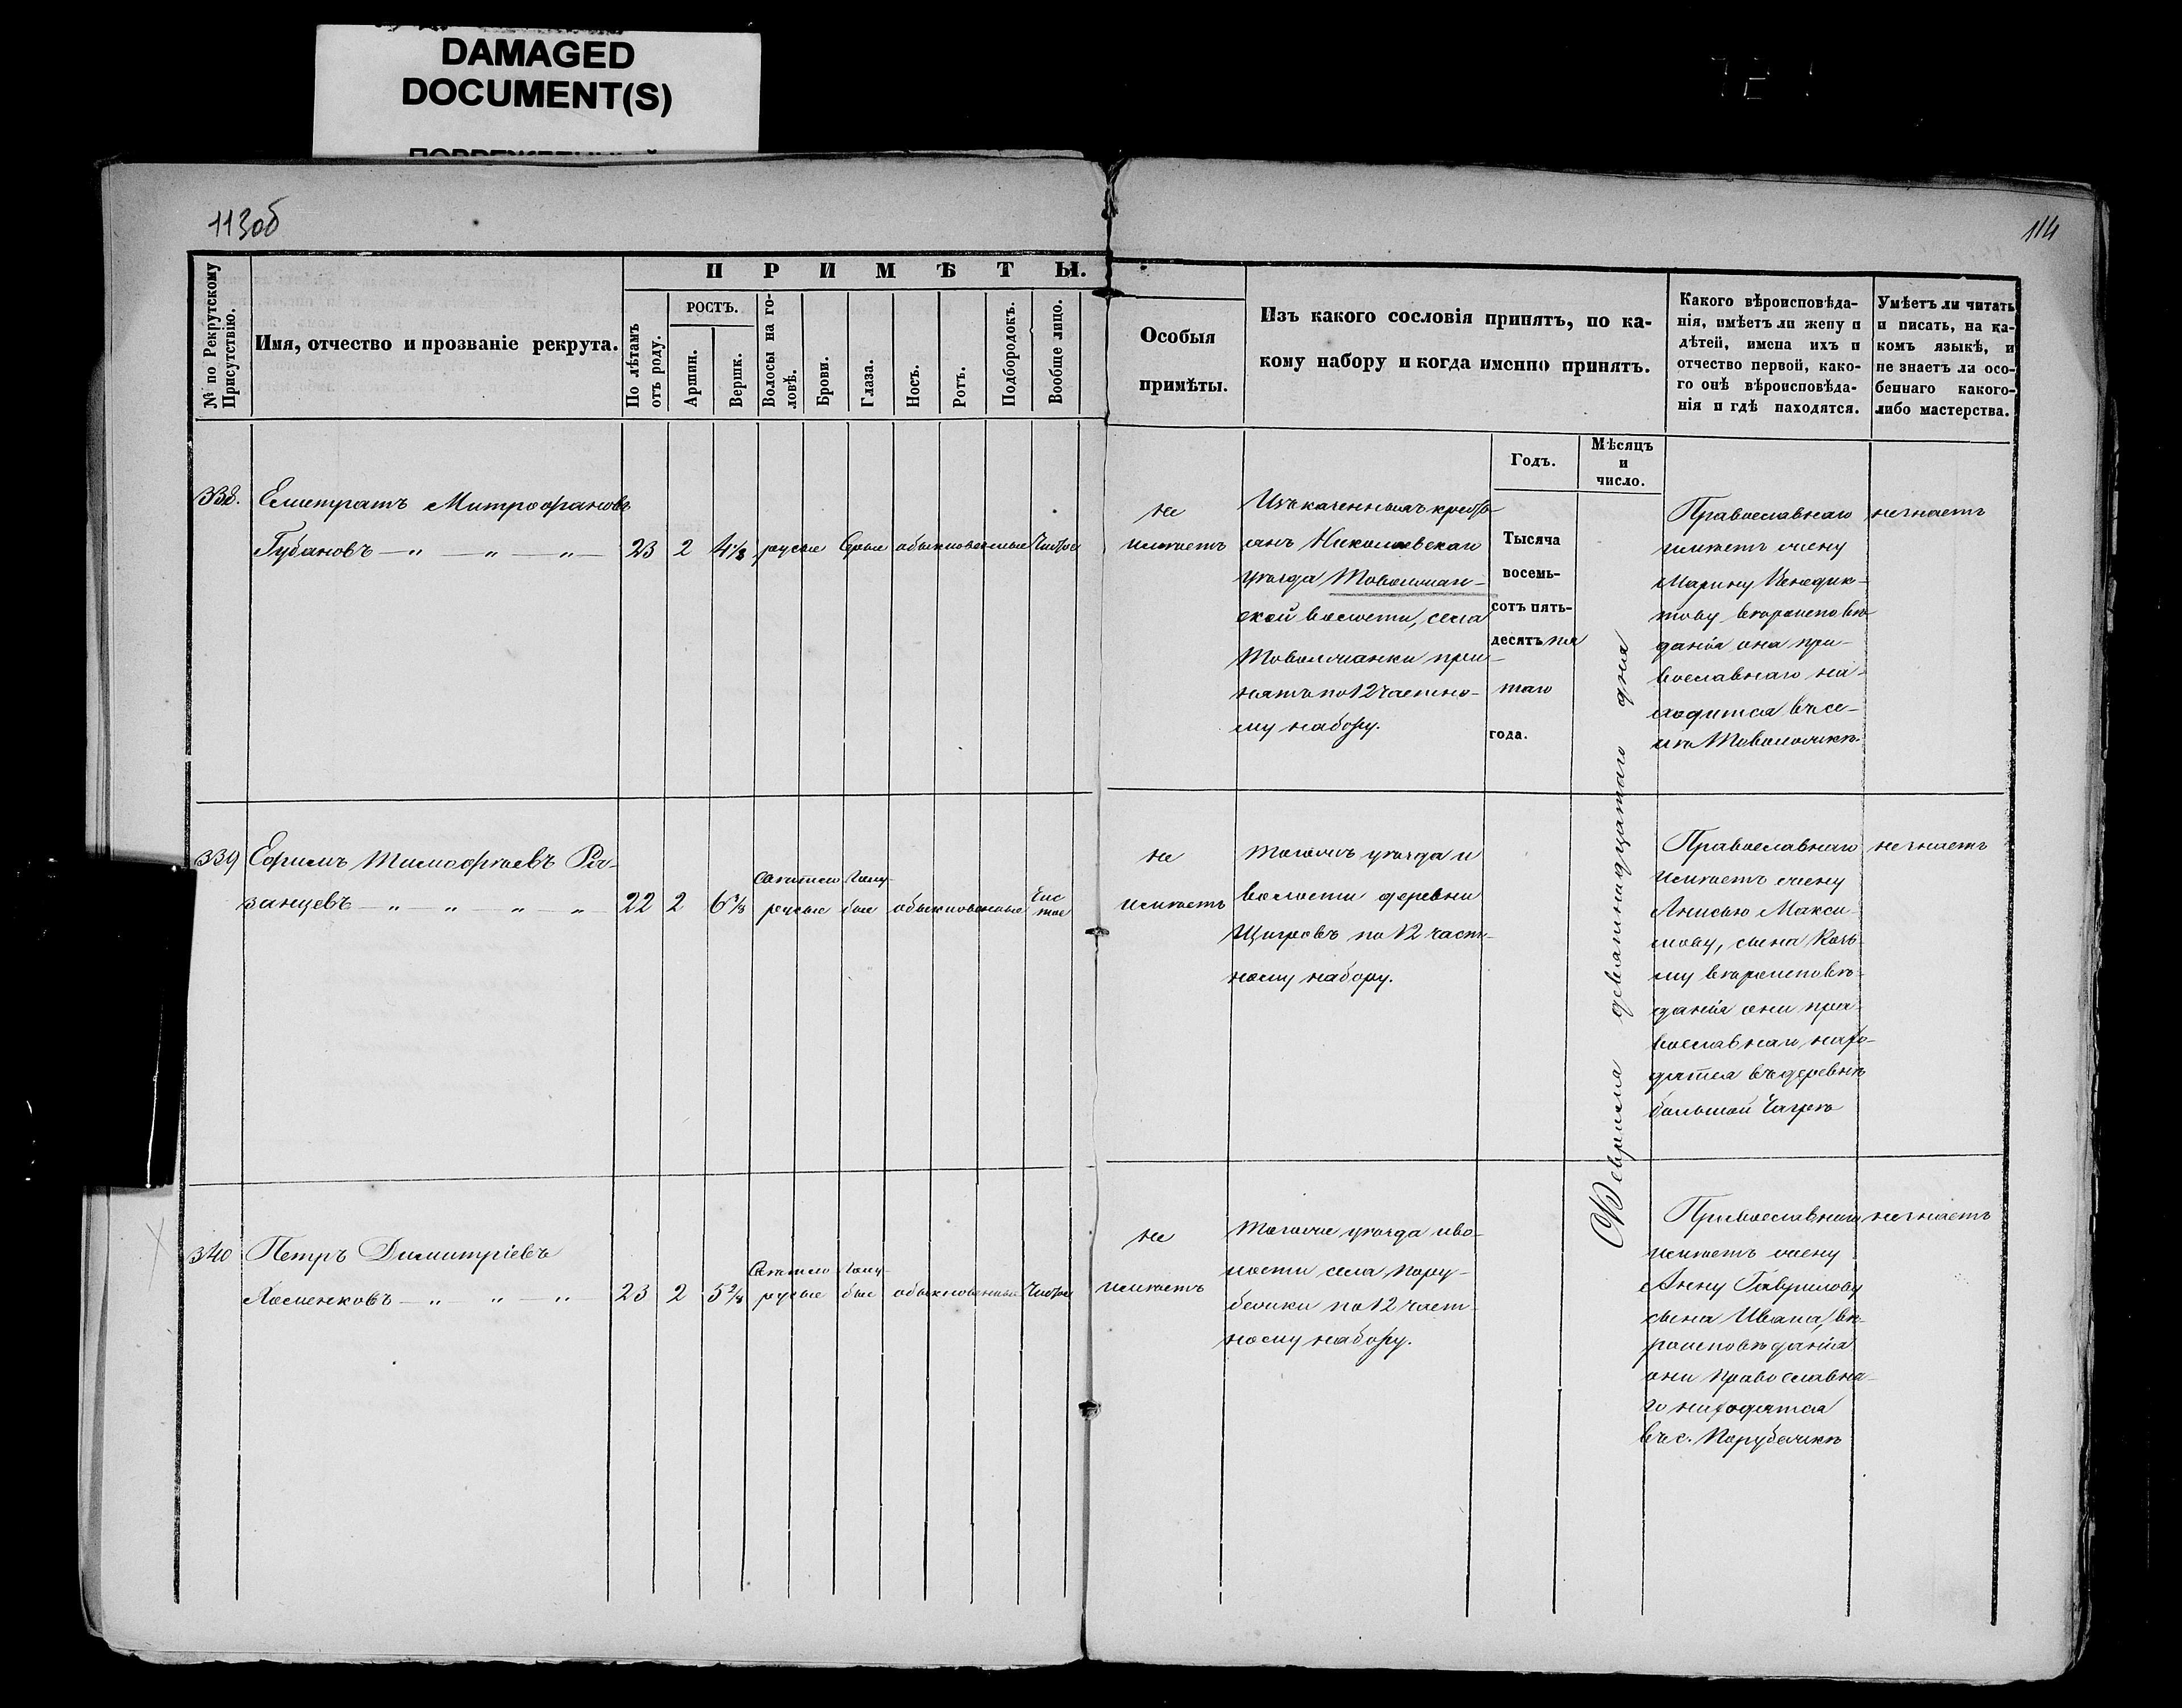 DAMAGED
DOCUMENT(S)
113об
114
№ по Рекрутскому Присутствію.
Имя, отчество и прозваніе рекрута.
ПРИМѢТЫ.
По лѣтамъ отъ роду.
РОСТЪ.
Аршин.
Вершк.
Волосы на головѣ.
Брови.
Глаза.
Носъ.
Ротъ.
Подбородокъ.
Вообще лицо.
Особыя
примѣты.
Изъ какого сословія принятъ, по ка-
кому набору и когда именно принятъ.
Годъ.
Мѣсяцъ
и
число.
Какого вѣроисповѣда-
нія, имѣетъ ли жену и
дѣтей, имена ихъ и
отчество первой, како-
го онѣ вѣроисповѣда-
нія и гдѣ находятся.
Умѣетъ ли читать
и писать, на ка-
комъ языкѣ, и
не знаетъ ли осо-
беннаго какого-
либо мастерства.
338. Елистратъ Митрофановъ
Губановъ — " — " — " —
23 2 4 1/8 русые Серые обыкновенные Чистое
не
имѣетъ
Изъ казенныхъ кресть-
янъ Николаевскаго
уѣзда Товолжан-
ской волости, села
Товолжанки при-
нятъ по 12 частно-
му набору.
Тысяча
восемь-
сотъ пять-
десятъ пя
таго
года.
Февраля девятнадцатаго дня
Православнаго
имѣетъ жену
Марину Венедик-
тову вѣроисповѣ-
данія она пра-
вославнаго на-
ходится въ се-
лѣ Товоложкѣ.
незнаетъ
339 Ефимъ Тимофѣевъ Ря-
занцевъ — " — " — " — "
22 2 6 3/8
Свѣтло русые
Голу-
бые
обыкновенные
Чис
тое
не
имѣетъ
Тогожъ уѣзда и
волости деревни
Щигровъ по 12 част-
ному набору.
Православнаго
имѣетъ жену
Анисью Макси-
мову, сына Козь-
му вѣроисповѣ-
данія они пра-
вославнаго нахо-
дятся въ деревнѣ
большой Чагрѣ
незнаетъ
340 Петръ Димитріевъ
Хоменковъ — " — " — "
23 2 5 2/8
Свѣтло русые
Голу-
бые
обыкновенные
Чистое
не
имѣетъ
Тогоже уѣзда и во-
лости села Пору-
бежки по 12 част-
ному набору.
Православнаго
имѣетъ жену
Анну Гаврилову
сына Ивана, вѣ-
роисповѣданія
они православна-
го находятся
въ с. Порубежкѣ
незнаетъ